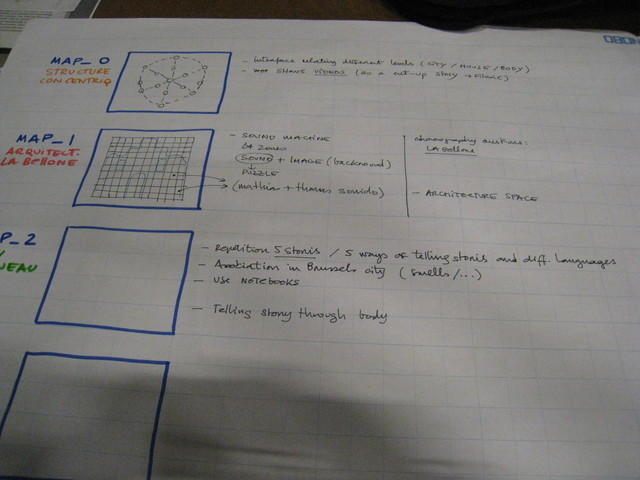 MAP_0
STRUCTURE
CONCENTRIQ
- interface relating different levels (CITY / HOUSE / BODY)
- not share VIDEOS (as a cut-up story → filmic)
MAP_1
ARQUITECT.
LA BELLONE
- SOUND MACHINE
64 zones
SOUND + IMAGE (background)
PUZZLE
(mathia + thomas sonido)
choreography
LA Bellone
- ARCHITECTURE SPACE
P_2
NEAU
- Repetition 5 stories / 5 ways of telling stories and diff. languages
- Association in Brussels city (smells/...)
- USE NOTEBOOKS
- Telling story through body